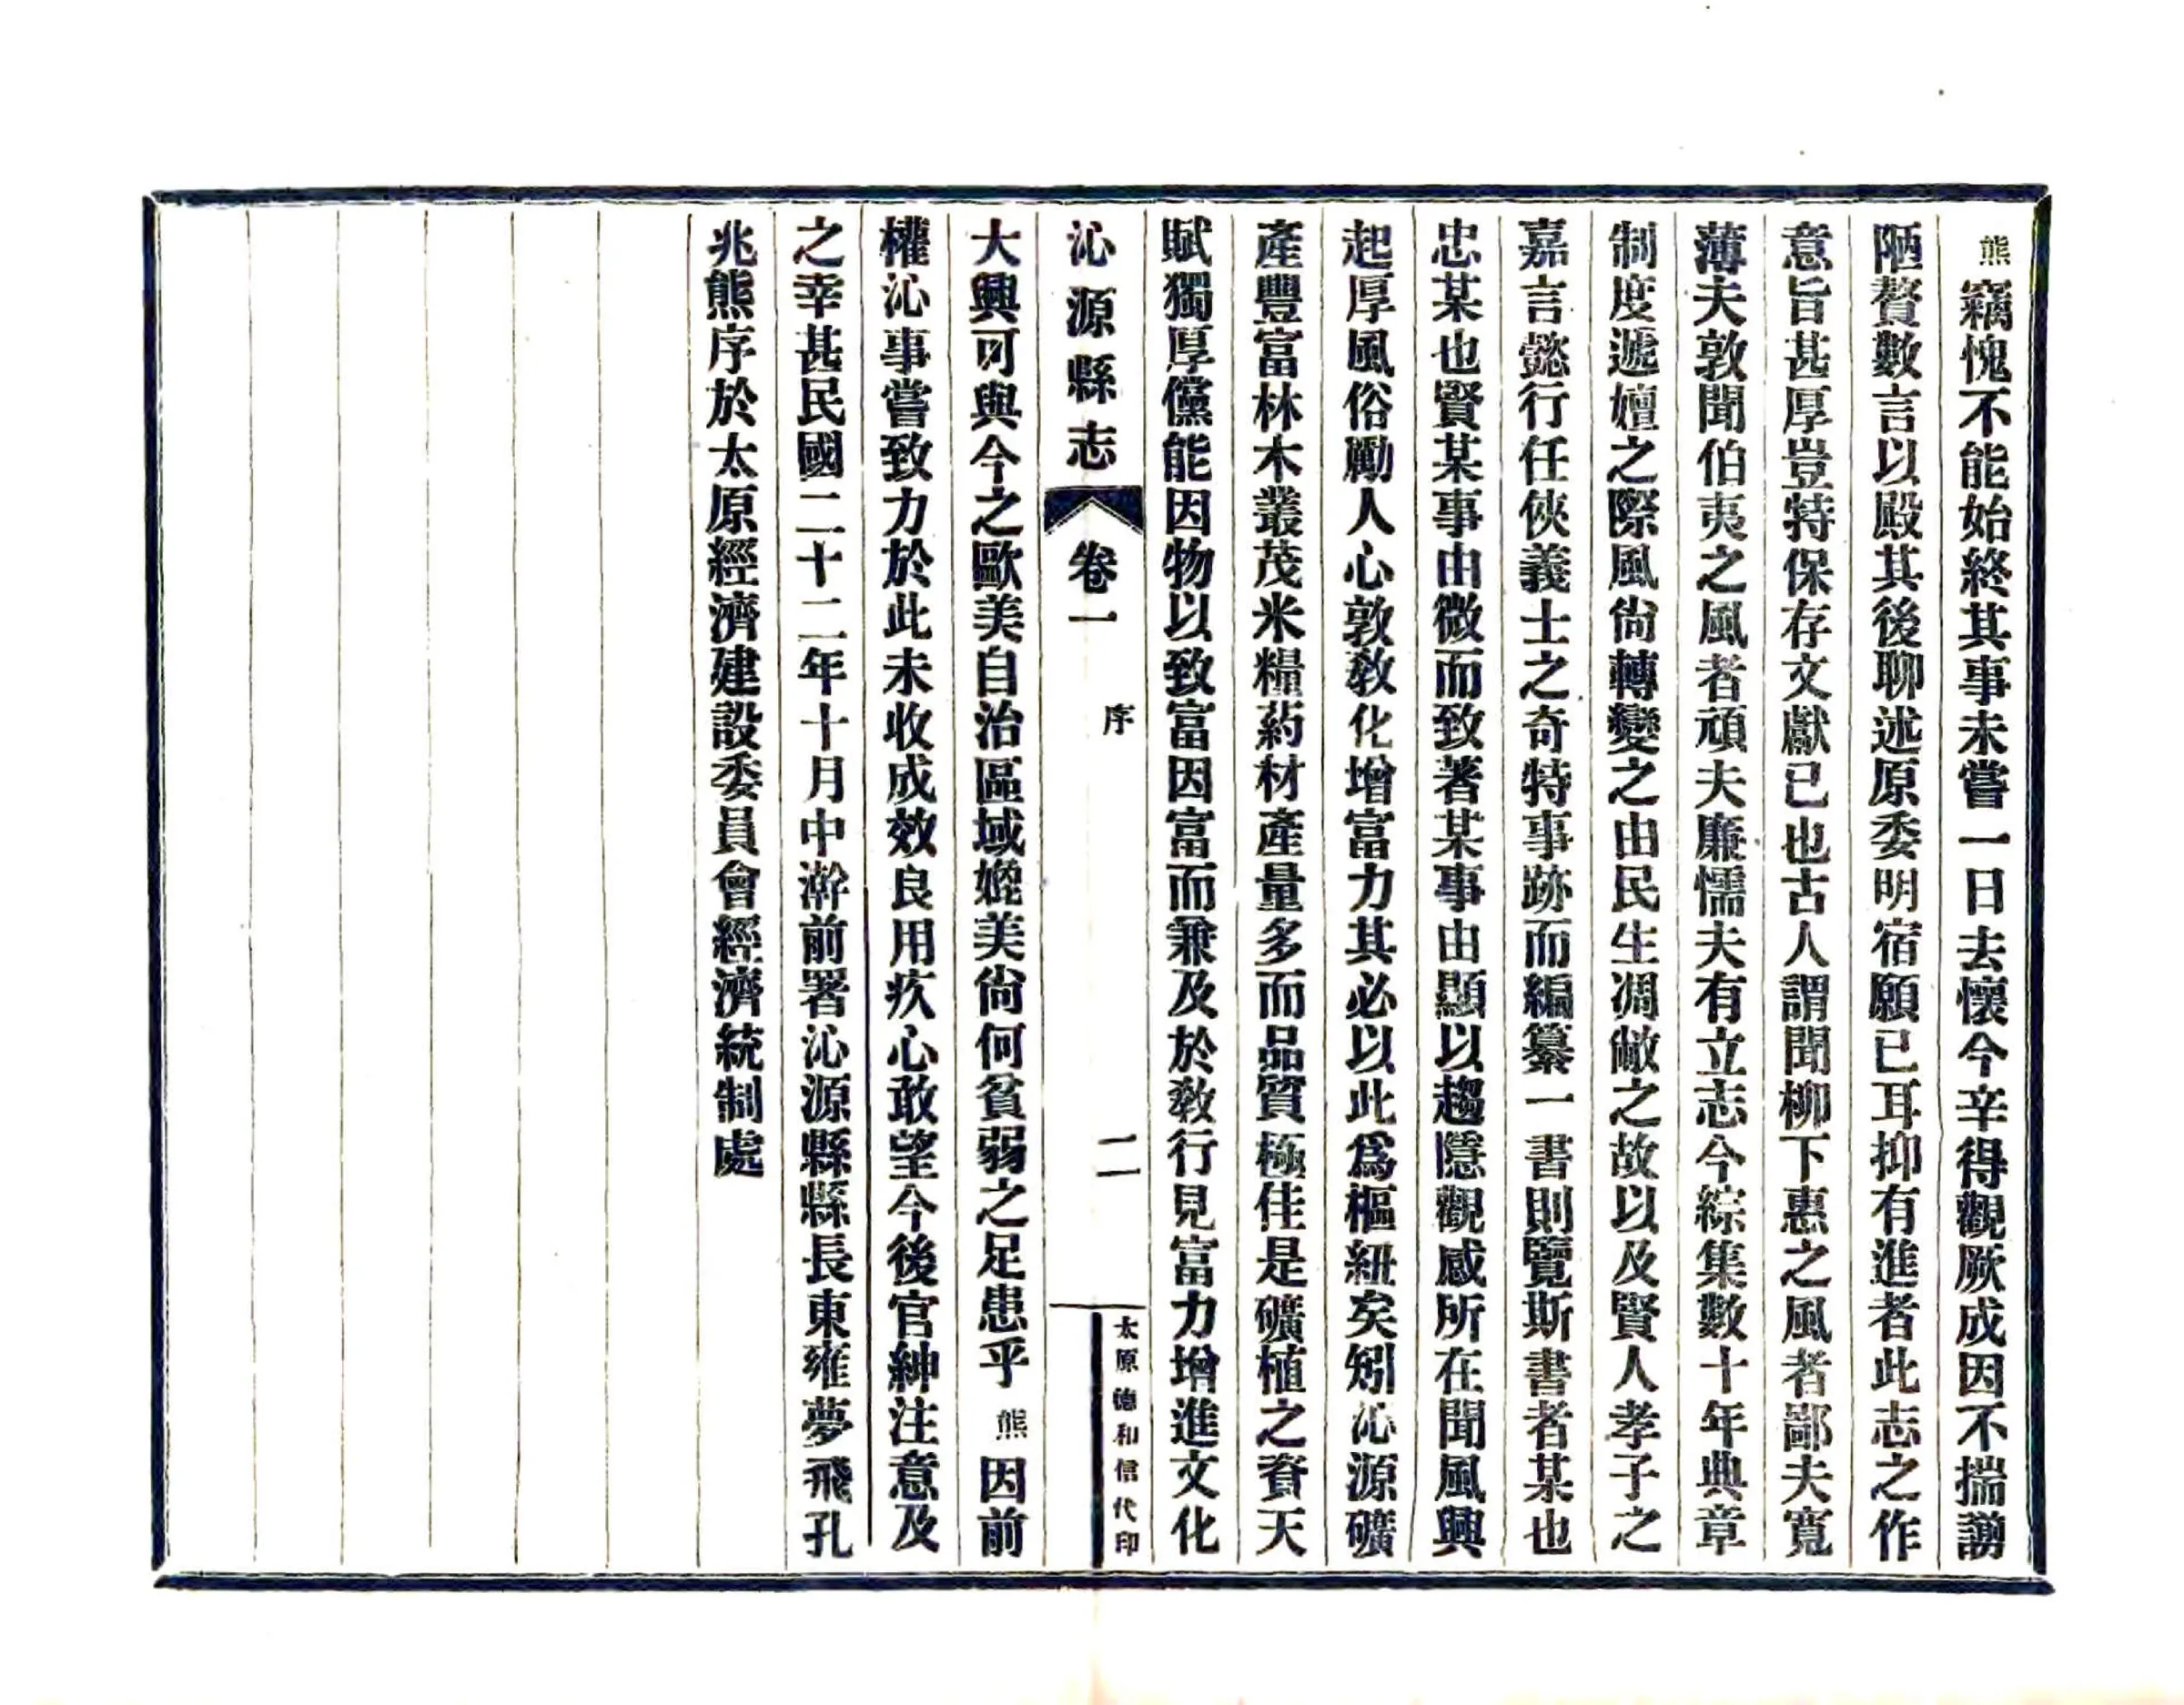 熊竊愧不能始終其事未嘗一日去懷今辛得觀厥成因不揣謭
陋贅數言以殿其後聊述原委明宿願已耳抑有進者此志之作
意旨甚厚豈特保存文獻已也古人謂聞柳下惠之風者鄙夫寬
薄夫敦聞伯夷之風者頑夫廉懦夫有立志今綜集數十年典章
制度遞嬗之際風尙轉變之由民生凋敝之故以及賢人孝子之
嘉言懿行任俠義士之奇特事跡而編纂一書則覽斯書者某也
忠某也賢某事由微而致著某事由顯以趨隱觀感所在聞風興
起厚風俗勵人心敦敎化增富力其必以此爲樞紐矣矧沁源礦
產豐富林木叢茂米糧葯材產量多而品質極佳是礦植之資天
賦獨厚儻能因物以致富因富而兼及於敎行見富力增進文化
沁源縣志 卷一 序 二 太原德和信代印
大興可與今之歐美自治區域媲美尙何貧弱之足患乎熊因前
權沁事嘗致力於此未收成效良用疚心敢望今後官紳注意及
之幸甚民國二十二年十月中澣前署沁源縣縣長東雍夢飛孔
兆熊序於太原經濟建設委員會經濟統制處